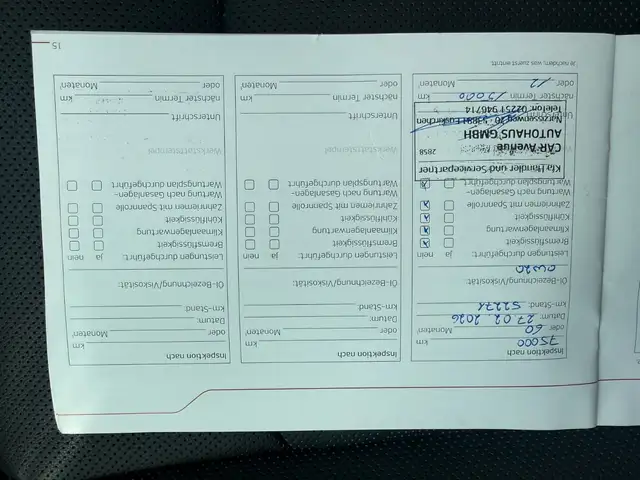 Inspektion nach
75000 km
oder 60 Monaten
Datum: 27.02.2026
km-Stand: 52271
Öl-Bezeichnung/Viskosität:
0W20
Leistungen durchgeführt: ja nein
Bremsflüssigkeit
Klimaanlagenwartung
Kühlflüssigkeit
Zahnriemen mit Spannrolle
Wartung nach Gasanlagen-
Wartungsplan durchgeführt
Kfz Händler und Servicepartner
CAR Avenue 2858
AUTOHAUS GMBH
53881 Euskirchen
Telefon: 02251 946714
Unterschrift
nächster Termin 15000 km
oder 12 Monaten
Inspektion nach
km
oder Monaten
Datum:
km-Stand:
Öl-Bezeichnung/Viskosität:
Leistungen durchgeführt: ja nein
Bremsflüssigkeit
Klimaanlagenwartung
Kühlflüssigkeit
Zahnriemen mit Spannrolle
Wartung nach Gasanlagen-
Wartungsplan durchgeführt
Werkstattstempel
Unterschrift
nächster Termin km
oder Monaten
Inspektion nach
km
oder Monaten
Datum:
km-Stand:
Öl-Bezeichnung/Viskosität:
Leistungen durchgeführt: ja nein
Bremsflüssigkeit
Klimaanlagenwartung
Kühlflüssigkeit
Zahnriemen mit Spannrolle
Wartung nach Gasanlagen-
Wartungsplan durchgeführt
Werkstattstempel
Unterschrift
nächster Termin km
oder Monaten
Je nachdem, was zuerst eintritt.
15